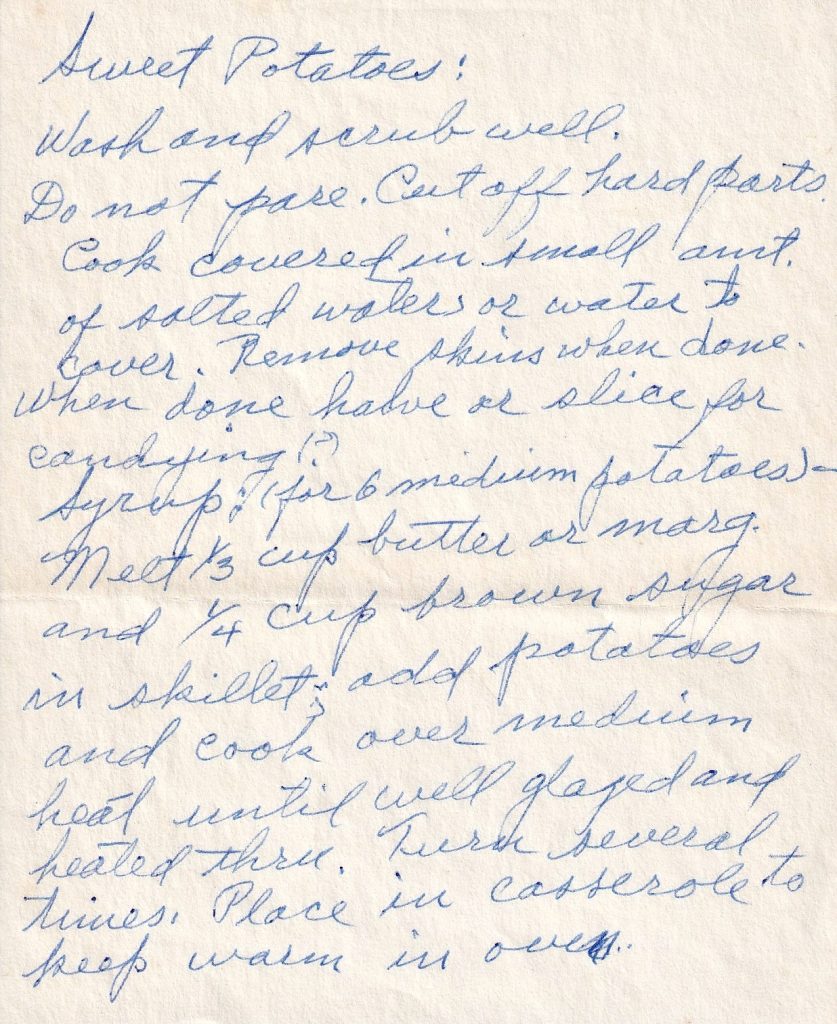 Sweet Potatoes:
Wash and scrub well.
Do not pare. Cut off hard parts.
Cook covered in small amt.
of salted water, or water to
cover. Remove skins when done.
When done halve or slice for
candying (?)
Syrup: (for 6 medium potatoes) -
Melt 1/3 cup butter or marg.
and 1/4 cup brown sugar
in skillet; add potatoes
and cook over medium
heat until well glazed and
heated thru. Turn several
times. Place in casserole to
keep warm in oven.